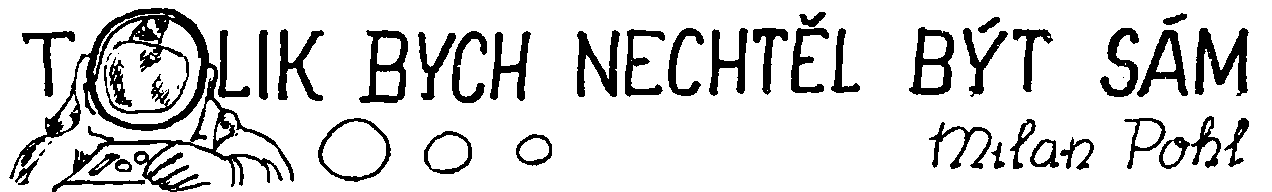 TOLIK BYCH NECHTĚL BÝT SÁM
Milan Pohl